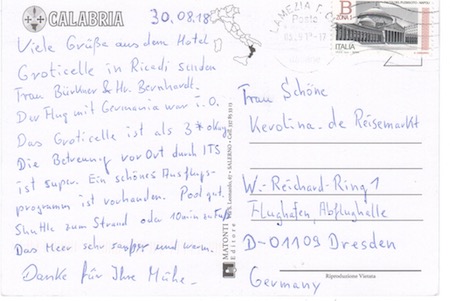 CALABRIA
30.08.18
Viele Grüße aus dem Hotel
Groticelle in Ricadi senden
Frau Bürkner & Hr. Bernhardt.
Der Flug mit Germania war i.O.
Das Groticelle ist als 3* okay
Die Betreuung vor Ort durch ITS
ist super. Ein schönes Ausflugs-
programm ist vorhanden. Post gut.
Shuttle zum Strand oder 10min zu Fuß
Das Meer sehr sauber und warm.
Danke für Ihre Mühe.
MATONTI
Editore
LAMEZIA T.
Posta
B
ZONA 1
ITALIA
Frau Schöne
Kerolina-de Reisemarkt
W.-Reichard-Ring 1
Flughafen, Abflughalle
D-01109 Dresden
Germany
Riproduzione Vietata